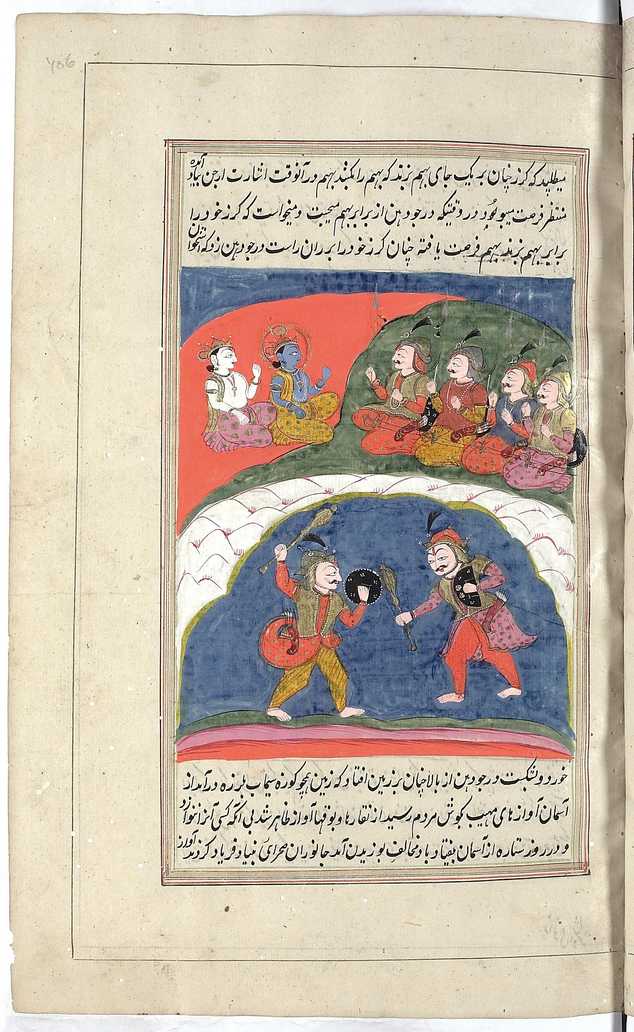 میطلبید که گرز چنان بر یک جای بهم زنند که بهم را بکشد بهم در آنوقت اشارت ارجن بیاد آمده
منتظر فرصت میبود و در وقتیکه درجودهن از برابر بهم میجست و میخواست که گرز خود را
برابر بهم بزند بهم فرصت یافته چنان گرز خود را بر ران راست درجودهن زد که استخوان
خورد و شکست درجودهن از بالا چنان بر زمین افتاد که زمین همچو کوزه سیماب بلرزه درآمد از
آسمان آوازهای مهیب بگوش مردم رسید از نقارها و بوقها آواز ظاهر شد بی آنکه کسی آنرا بنوازد
و در روز ستاره از آسمان بیفتاد باد مخالف بوزیدن آمد جانوران صحرای بنیاد فریاد کردند آواز